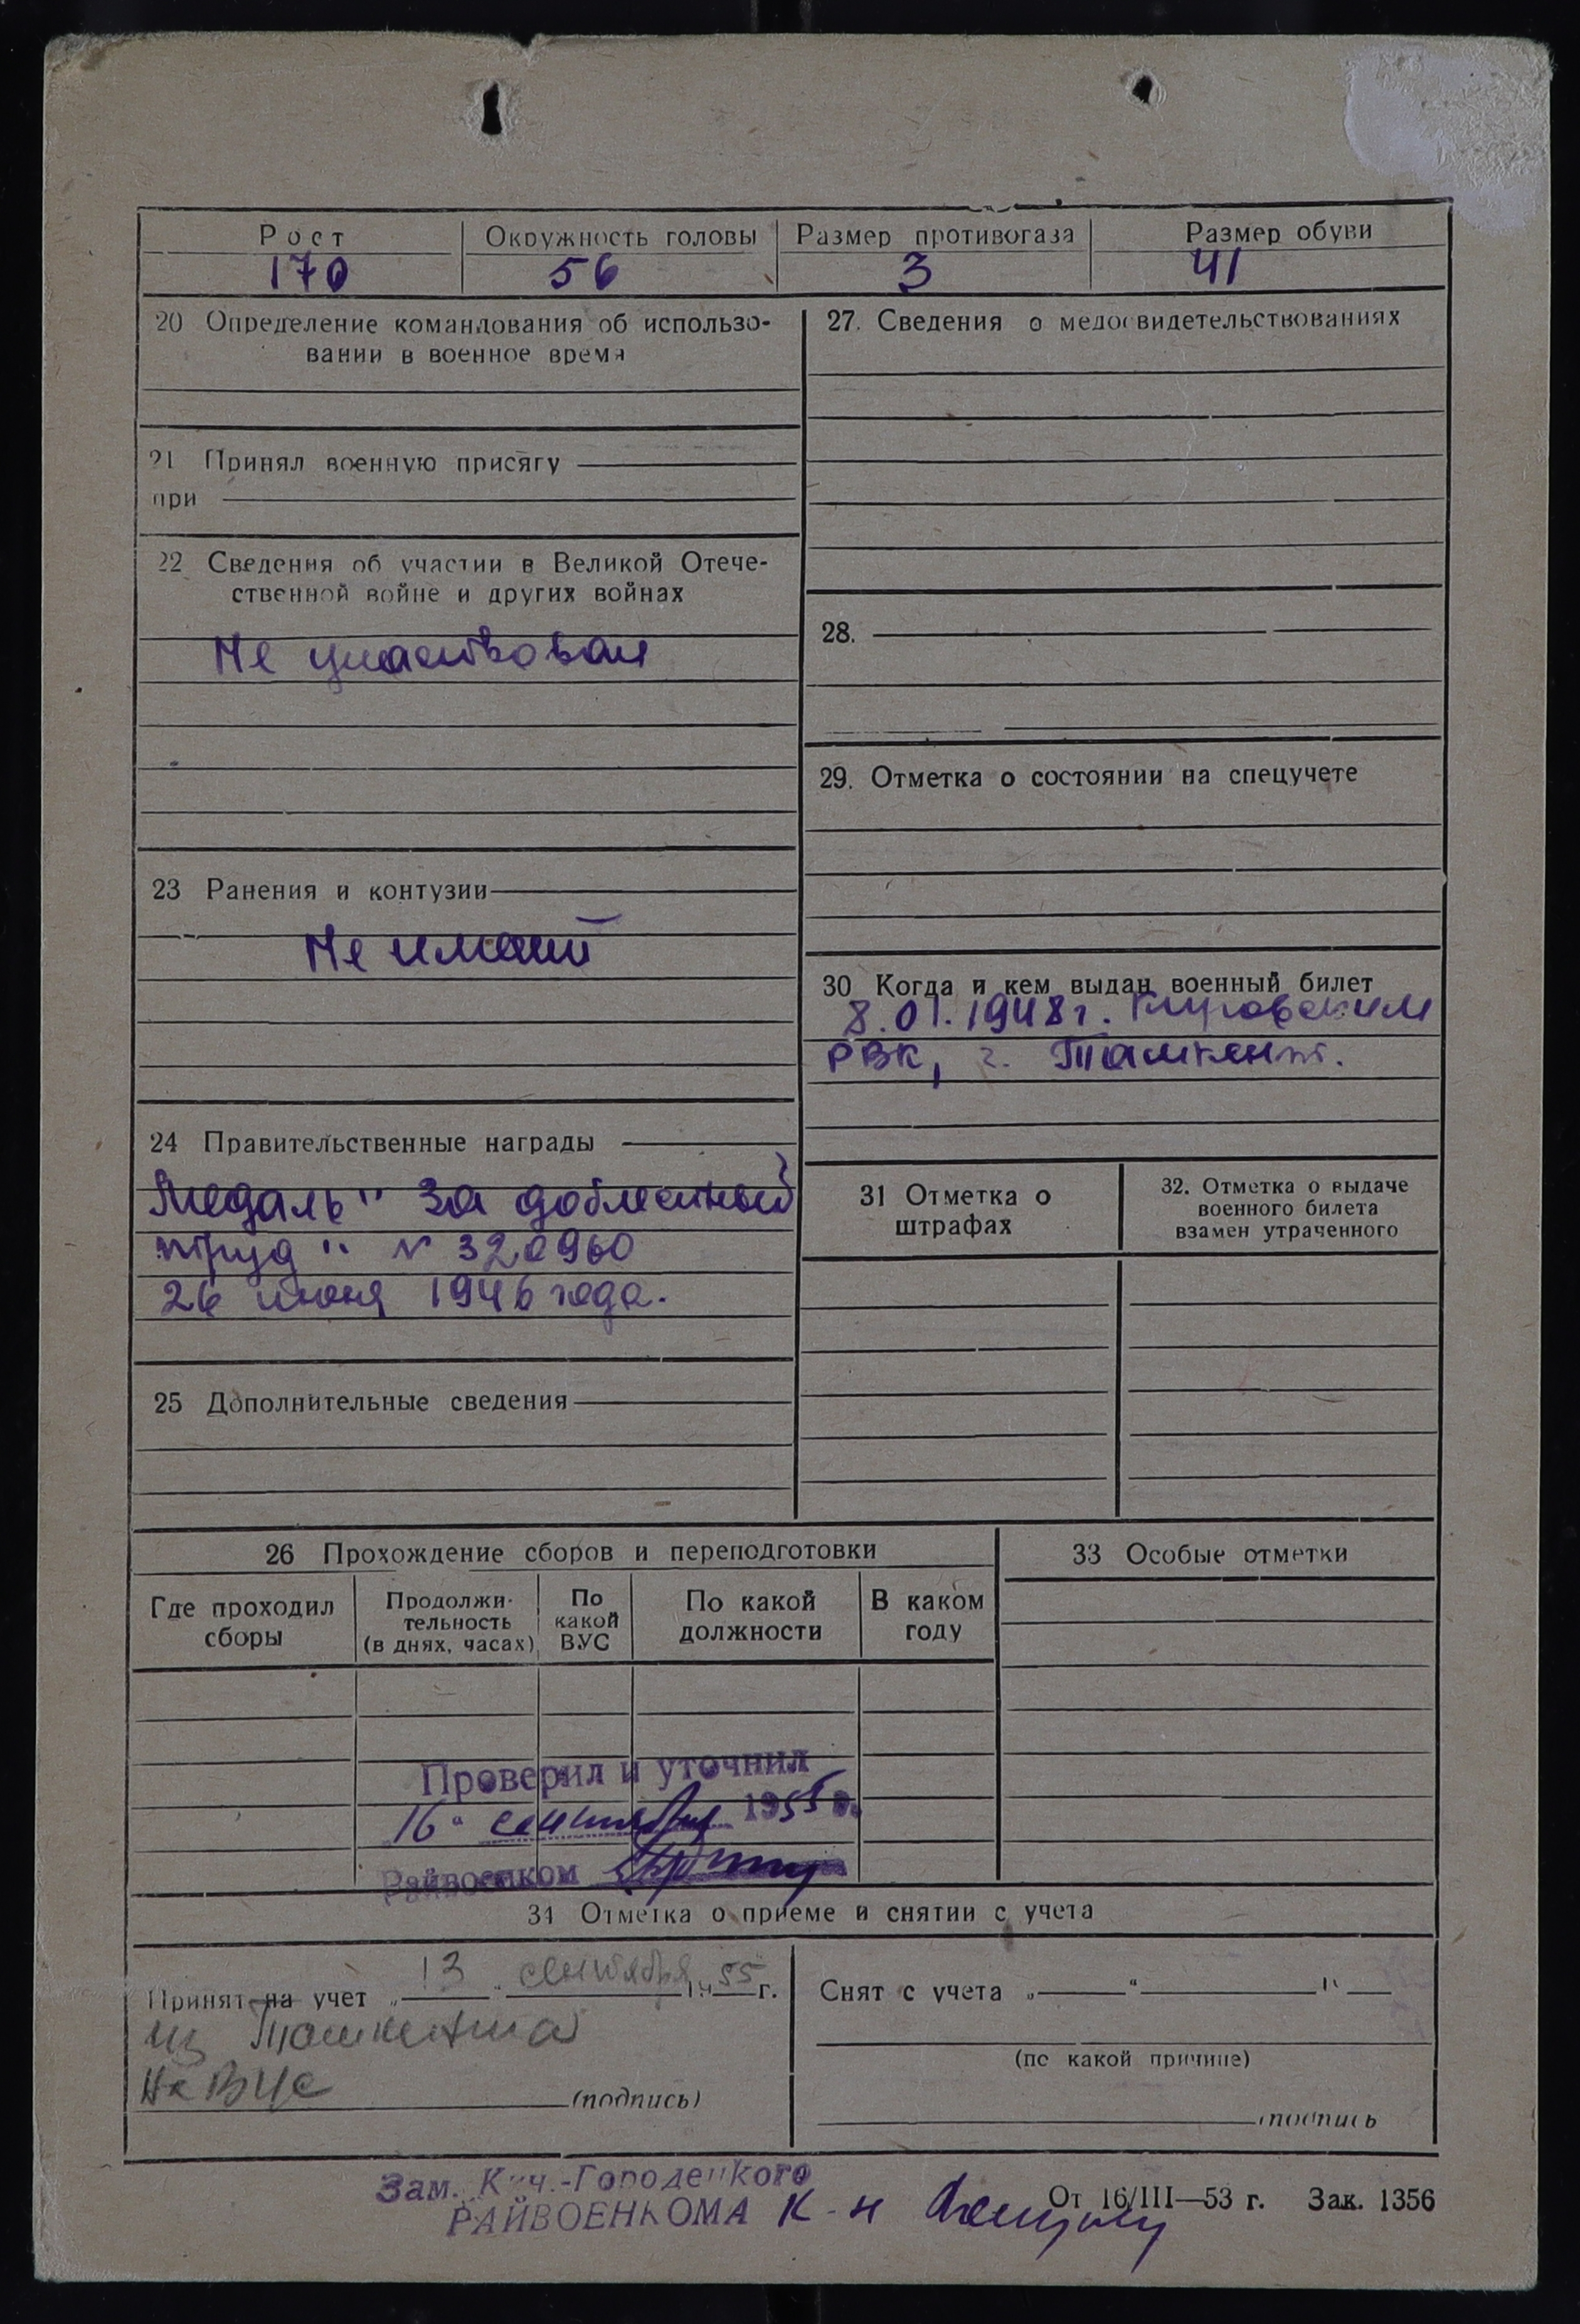 Рост Окружность головы Размер противогаза Размер обуви
170 56 3 41
20 Определение командования об использо-
вании в военное время
21 Принял военную присягу
при
22 Сведения об участии в Великой Отече-
ственной войне и других войнах
Не участвовал
23 Ранения и контузии
Не имеет
24 Правительственные награды
Медаль "За доблестный
труд" № 320960
26 июня 1946 года.
25 Дополнительные сведения
27. Сведения о медосвидетельствованиях
28.
29. Отметка о состоянии на спецучете
30 Когда и кем выдан военный билет
8.01.1948 г. Кировским
РВК, г. Ташкент.
31 Отметка о
штрафах
32. Отметка о выдаче
военного билета
взамен утраченного
26 Прохождение сборов и переподготовки
Где проходил
сборы
Продолжи-
тельность
(в днях, часах)
По
какой
ВУС
По какой
должности
В каком
году
33 Особые отметки
Проверил и уточнил
16 " сентября 1955 г.
Райвоенком
34 Отметка о приеме и снятии с учета
Принят на учет „ 13 " сентября 1955 г.
из Ташкента
на ВУС
(подпись)
Снят с учета „ " 19
(по какой причине)
подпись
Зам. Кич.-Городецкого
РАЙВОЕНКОМА К-н
От 16/III—53 г. Зак. 1356